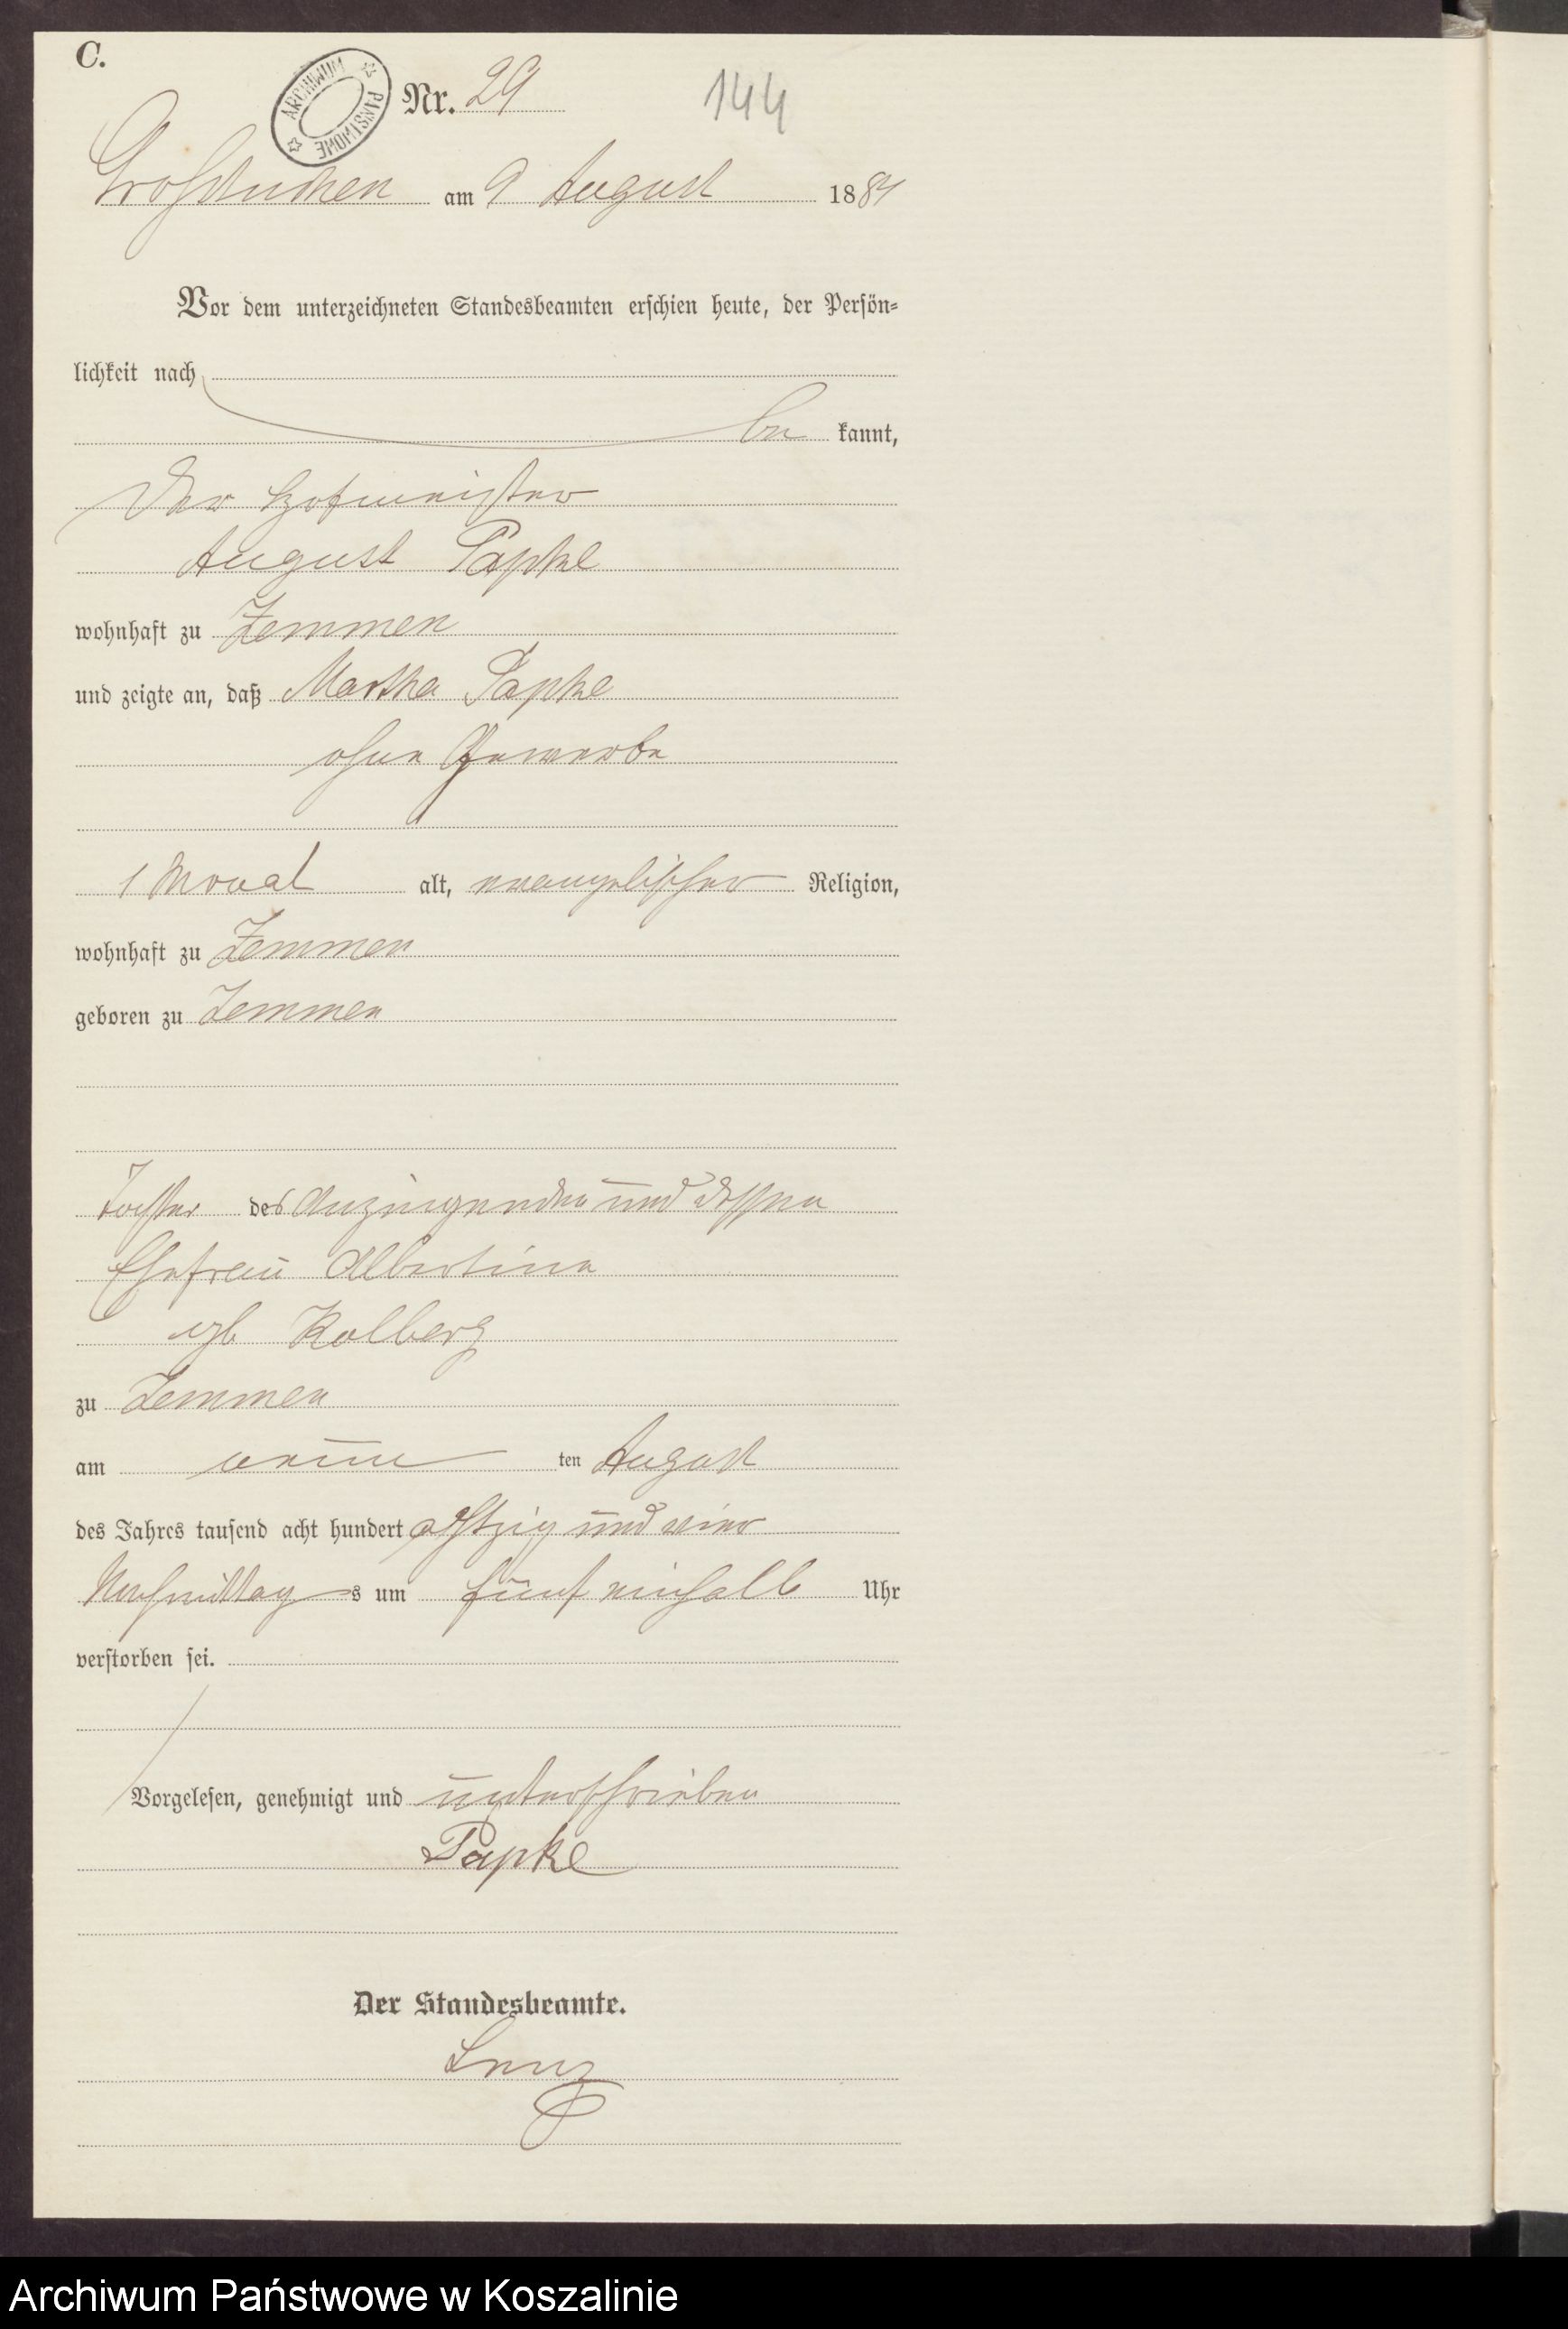 C.
ARCHIWUM PAŃSTWOWE
Nr. 29
144
Großtuchen am 9 August 1884
Vor dem unterzeichneten Standesbeamten erschien heute, der Persön-
lichkeit nach
be kannt,
der Hofmeister
August Papke
wohnhaft zu Zemmen
und zeigte an, daß Martha Papke
ohne Gewerbe
1 Monat alt, evangelischer Religion,
wohnhaft zu Zemmen
geboren zu Zemmen
Tochter des Anzeigenden und dessen
Ehefrau Albertine
geb Kolberg
zu Zemmen
am neun ten August
des Jahres tausend acht hundert achtzig und vier
Nachmittag s um fünf einhalb Uhr
verstorben sei.
Vorgelesen, genehmigt und unterschrieben
Papke
Der Standesbeamte.
Lenz
Archiwum Państwowe w Koszalinie